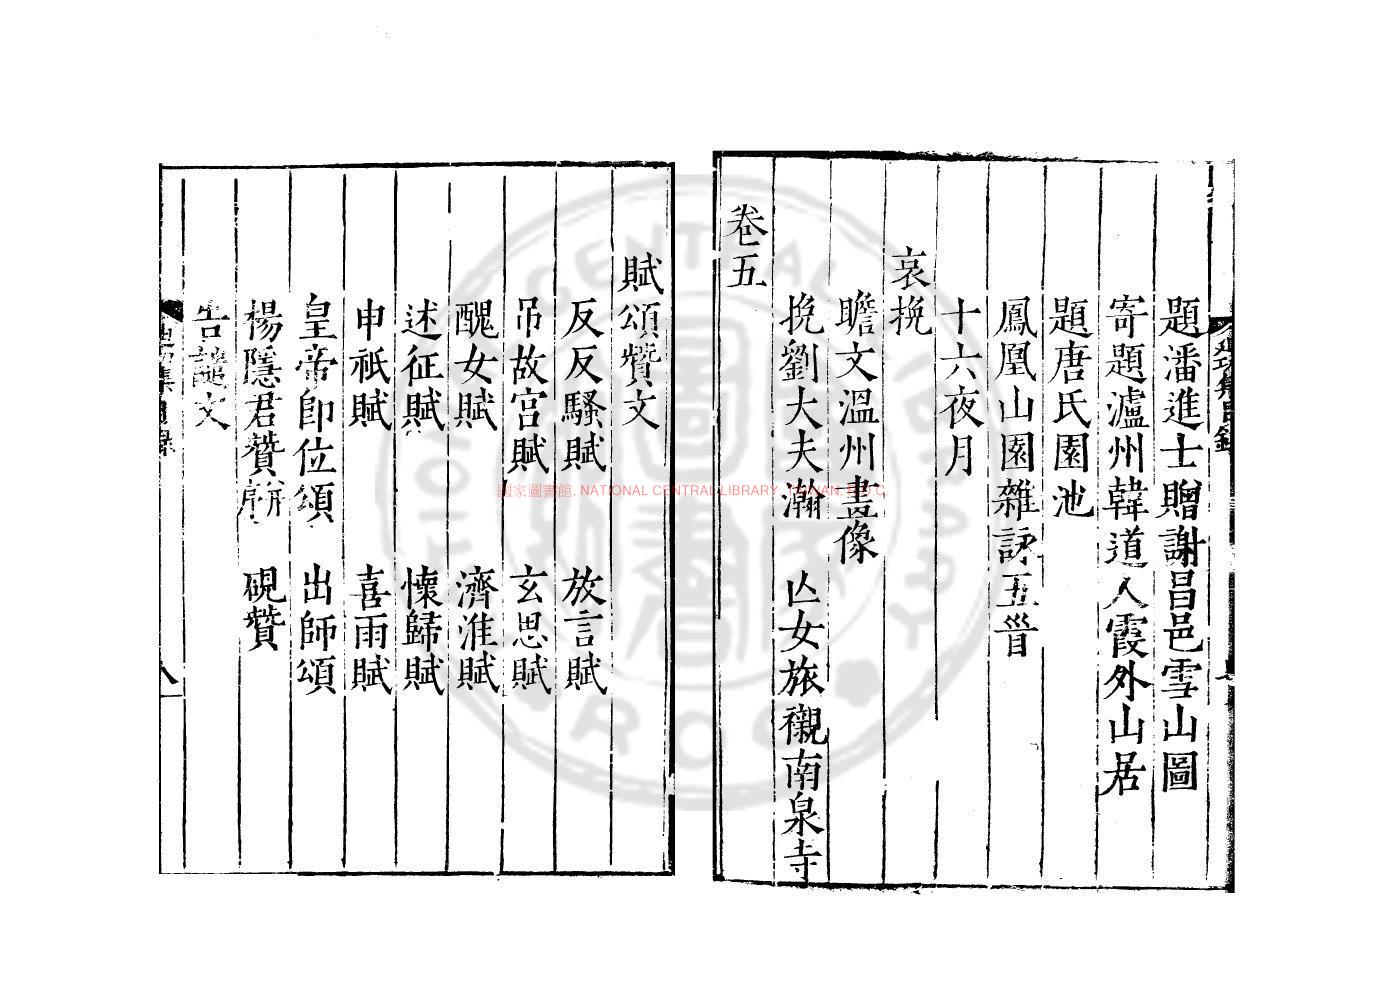 題潘進士贈謝昌邑雪山圖
寄題瀘州韓道人霞外山居
題唐氏園池
鳳凰山園雜詠五首
十六夜月
哀挽
瞻文溫州畫像
挽劉大夫瀚 亾女旅櫬南泉寺
卷五
賦頌贊文
反反騷賦 放言賦
吊故宮賦 玄思賦
醜女賦 濟淮賦
述征賦 懷歸賦
申祇賦 喜雨賦
皇帝卽位頌 出師頌
楊隱君贊 硯贊
告 文
國家圖書館. NATIONAL CENTRAL LIBRARY
CENTRAL LIBRARY
R.O.C